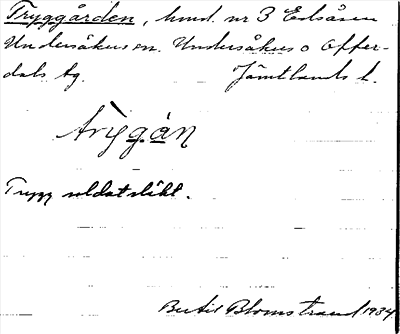 Tryggården, hmd. nr 3 Edsåsen
Undersåkers sn. Undersåkers o Offer-
dals tg. Jämtlands l.
trỳgán
Trygg soldatsläkt.
Bertil Blomstrand 1934